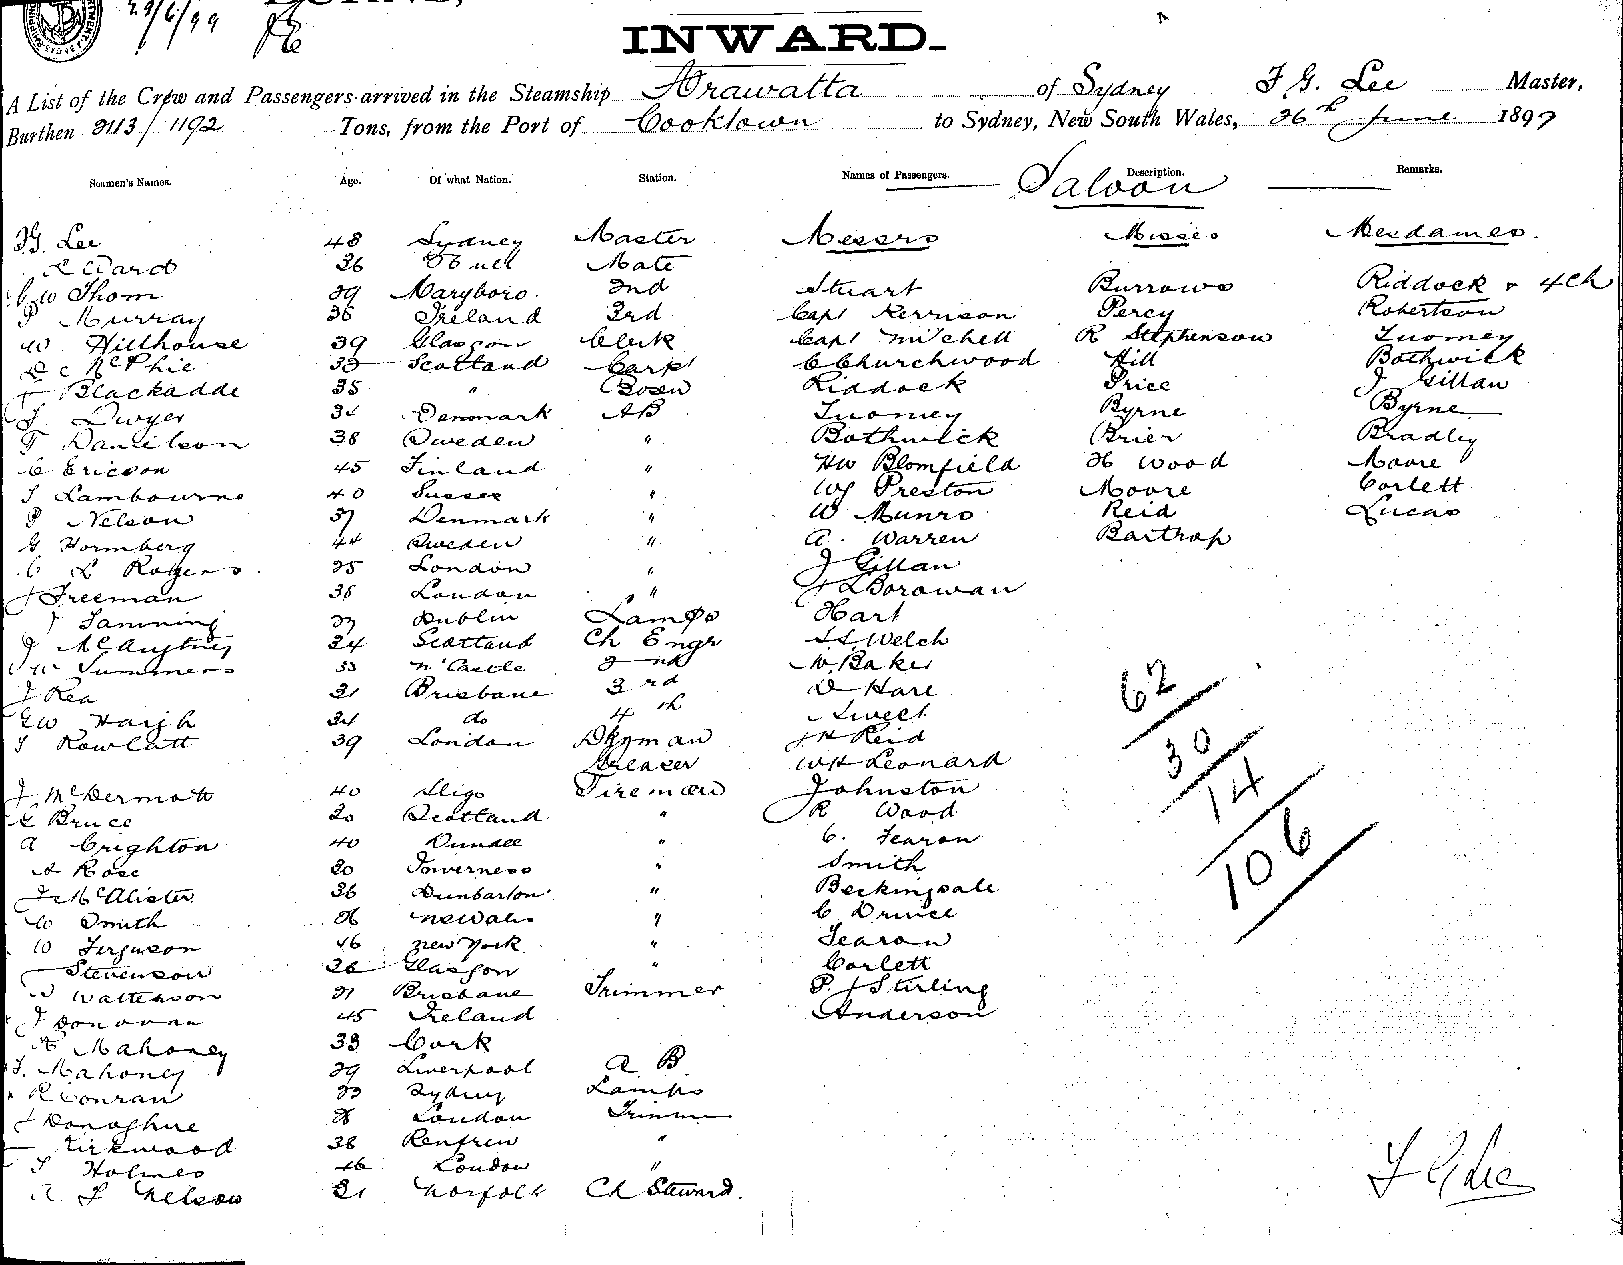 29/6/99
INWARD.
A List of the Crew and Passengers arrived in the Steamship Arawatta of Sydney F G. Lee Master,
Burthen 2113/1192 Tons, from the Port of Cooktown to Sydney, New South Wales, 26th June 1899
Seamen's Names. Age. Of what Nation. Station. Names of Passengers. Description. Remarks.
Saloon
F G. Lee 48 Sydney Master Messrs Misses Mesdames.
R Ward 36 Hull Mate
C W Thom 29 Maryboro. 2nd Stuart Burrows Riddock & 4 Ch
P Murray 36 Ireland 3rd Capt Kerrison Percy Robertson
W Hillhouse 39 Glasgow Clerk Capt Mitchell R Stephenson Tuomey
D C McPhie 33 Scotland Carpt C Churchwood Hill Bothwick
Blackadde 35 " Bosn Riddock Price J Gillan
J. Dwyer 34 Denmark AB Tuomey Byrne Byrne
Danielson 38 Sweden " Bothwick Brier Bradley
C Ericson 45 Finland " HW Blomfield H Wood Moore
J Lambourne 40 Sussex " WJ Preston Moore Corlett
P Nelson 37 Denmark " W Munro Reid Lucas
G Hormberg 44 Sweden " A. Warren Bartrop
C L Rogers 25 London " J Gillan
J Freeman 38 London " J L Borowan
J Tamming 33 Dublin Lamps Hart
J 24 Scotland Ch Engr Welch
W Summers 33 N'Castle 2nd W. Baker
J Rea 31 Brisbane 3rd D Hare
GW Haigh 24 do 4th Sweet
Rowlatt 39 London Dkyman J H Reid
Greaser WH Leonard
J McDermott 40 Sligo Fireman Johnston
Bruce 30 Scotland " R Wood
A Crighton 40 Dundee " C. Fearon
A Rose 30 Inverness " Smith
J McAlister 36 Dunbarton " Beckingsale
W Smith 26 NSWales " C Prince
W Ferguson 46 New York " Fearon
Stevenson 26 Glasgow " Corlett
Watterson 21 Brisbane Trimmer P. J Stirling
J Donovan 45 Ireland Anderson
Mahoney 33 Cork
J. Mahoney 29 Liverpool A B
R Conran 23 Sydney Lamps
J Donoghue London Trimm
Kirkwood 38 Renfrew "
J Holmes 46 London "
R J Nelson 31 Norfolk Ch Steward.
62
30
14
106
F G Lee